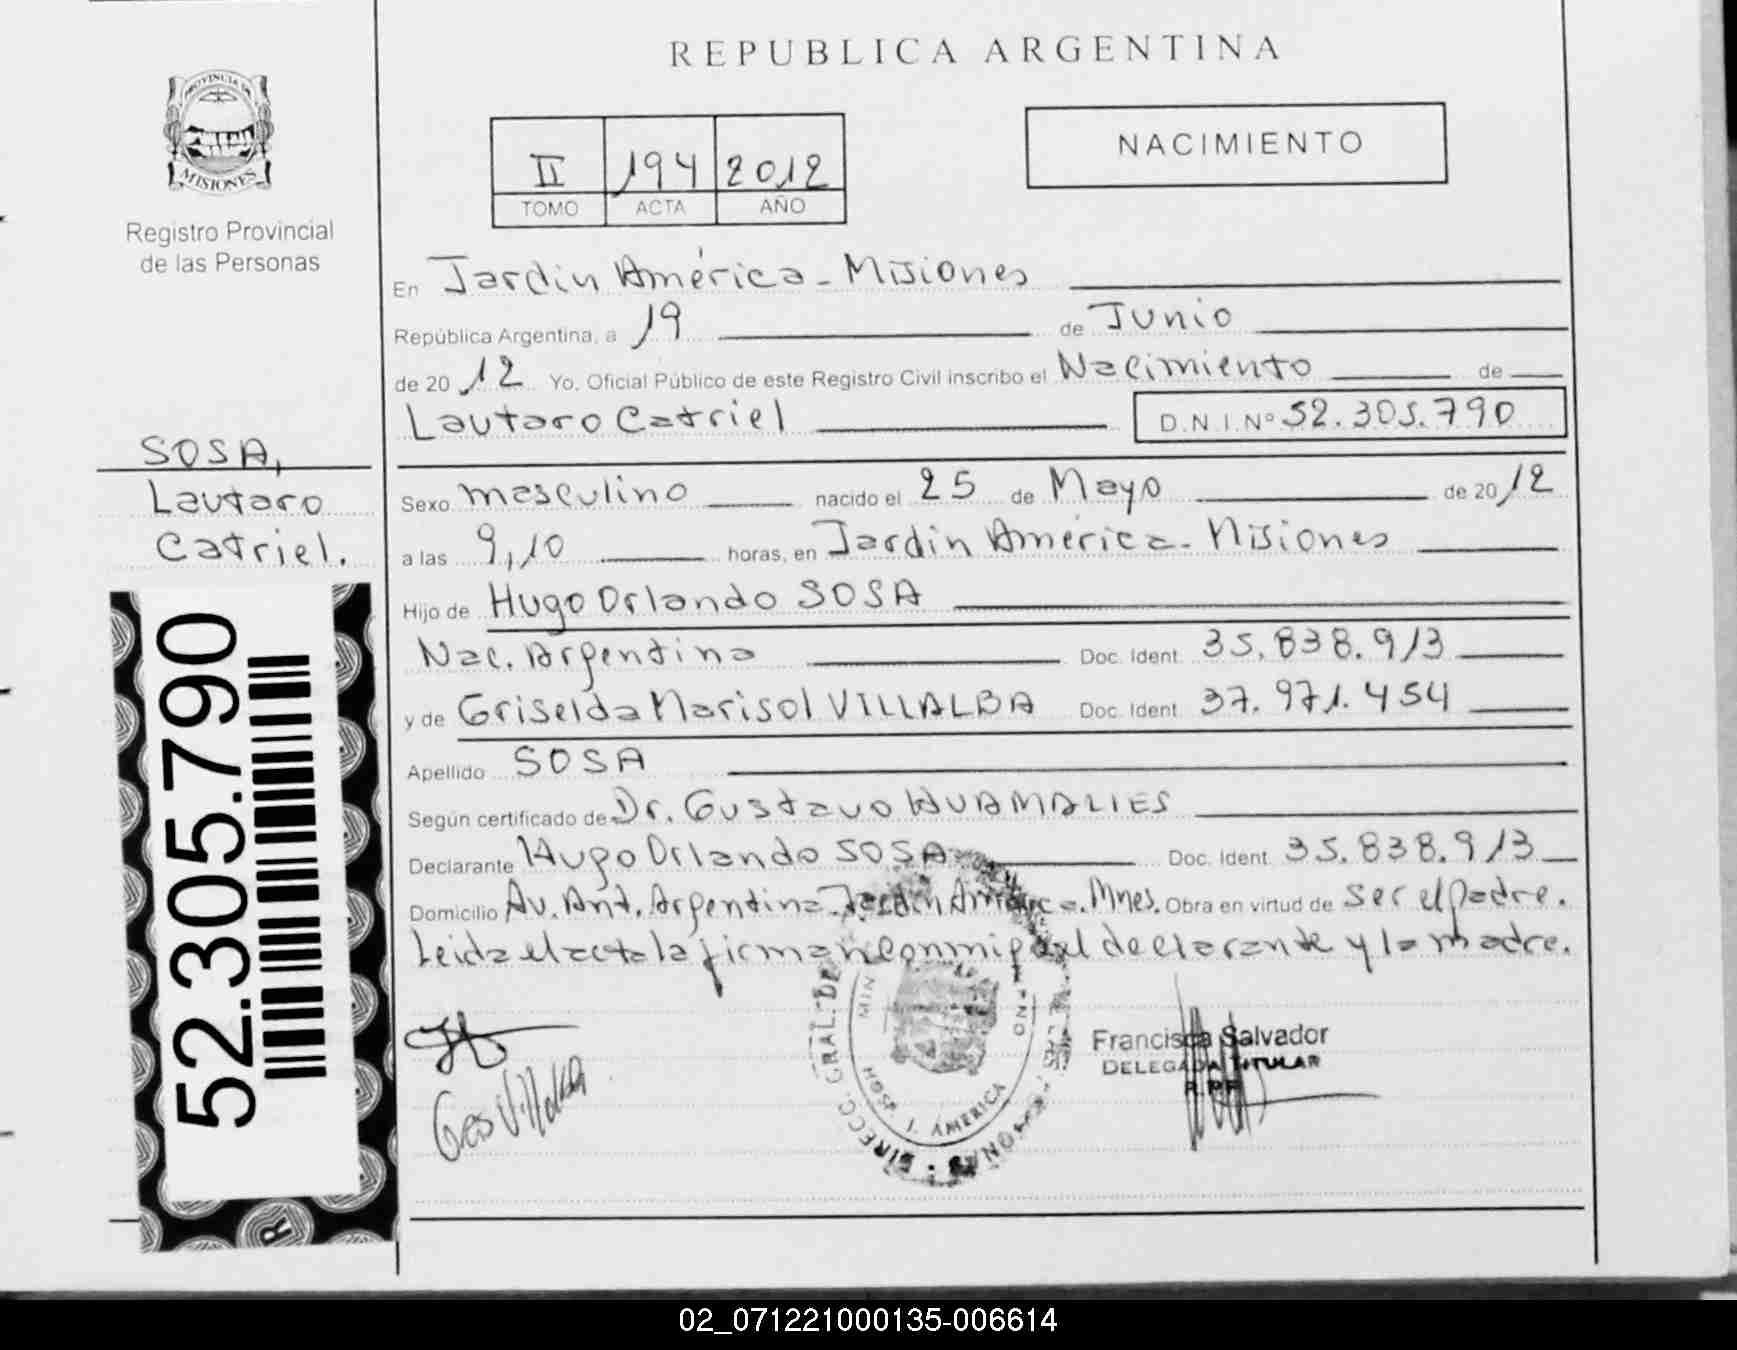 REPUBLICA ARGENTINA
PROVINCIA DE
MISIONES
Registro Provincial
de las Personas
II 194 2012
TOMO ACTA AÑO
NACIMIENTO
En Jardin América - Misiones
República Argentina, a 19 de Junio
de 2012 Yo, Oficial Público de este Registro Civil inscribo el Nacimiento de
Lautaro Catriel D.N.I.Nº 52.305.790
SOSA,
Lautaro
Catriel.
Sexo masculino nacido el 25 de Mayo de 2012
a las 9,10 horas, en Jardin América - Misiones
Hijo de Hugo Orlando SOSA
Nac. Argentina Doc. Ident. 35.838.913
y de Griselda Marisol VILLALBA Doc. Ident. 37.971.454
Apellido SOSA
Según certificado de Dr. Gustavo HUAMALIES
Declarante Hugo Orlando SOSA Doc. Ident. 35.838.913
Domicilio Av. Ant. Argentina. Jardin América. Mnes. Obra en virtud de ser el padre.
Leida el acta la firman conmigo el declarante y la madre.
52.305.790
DIRECC. GRAL. DE
HOSP. J. AMERICA
Francisca Salvador
DELEGADA TITULAR
R.P.P.
Villalba
R
02_071221000135-006614